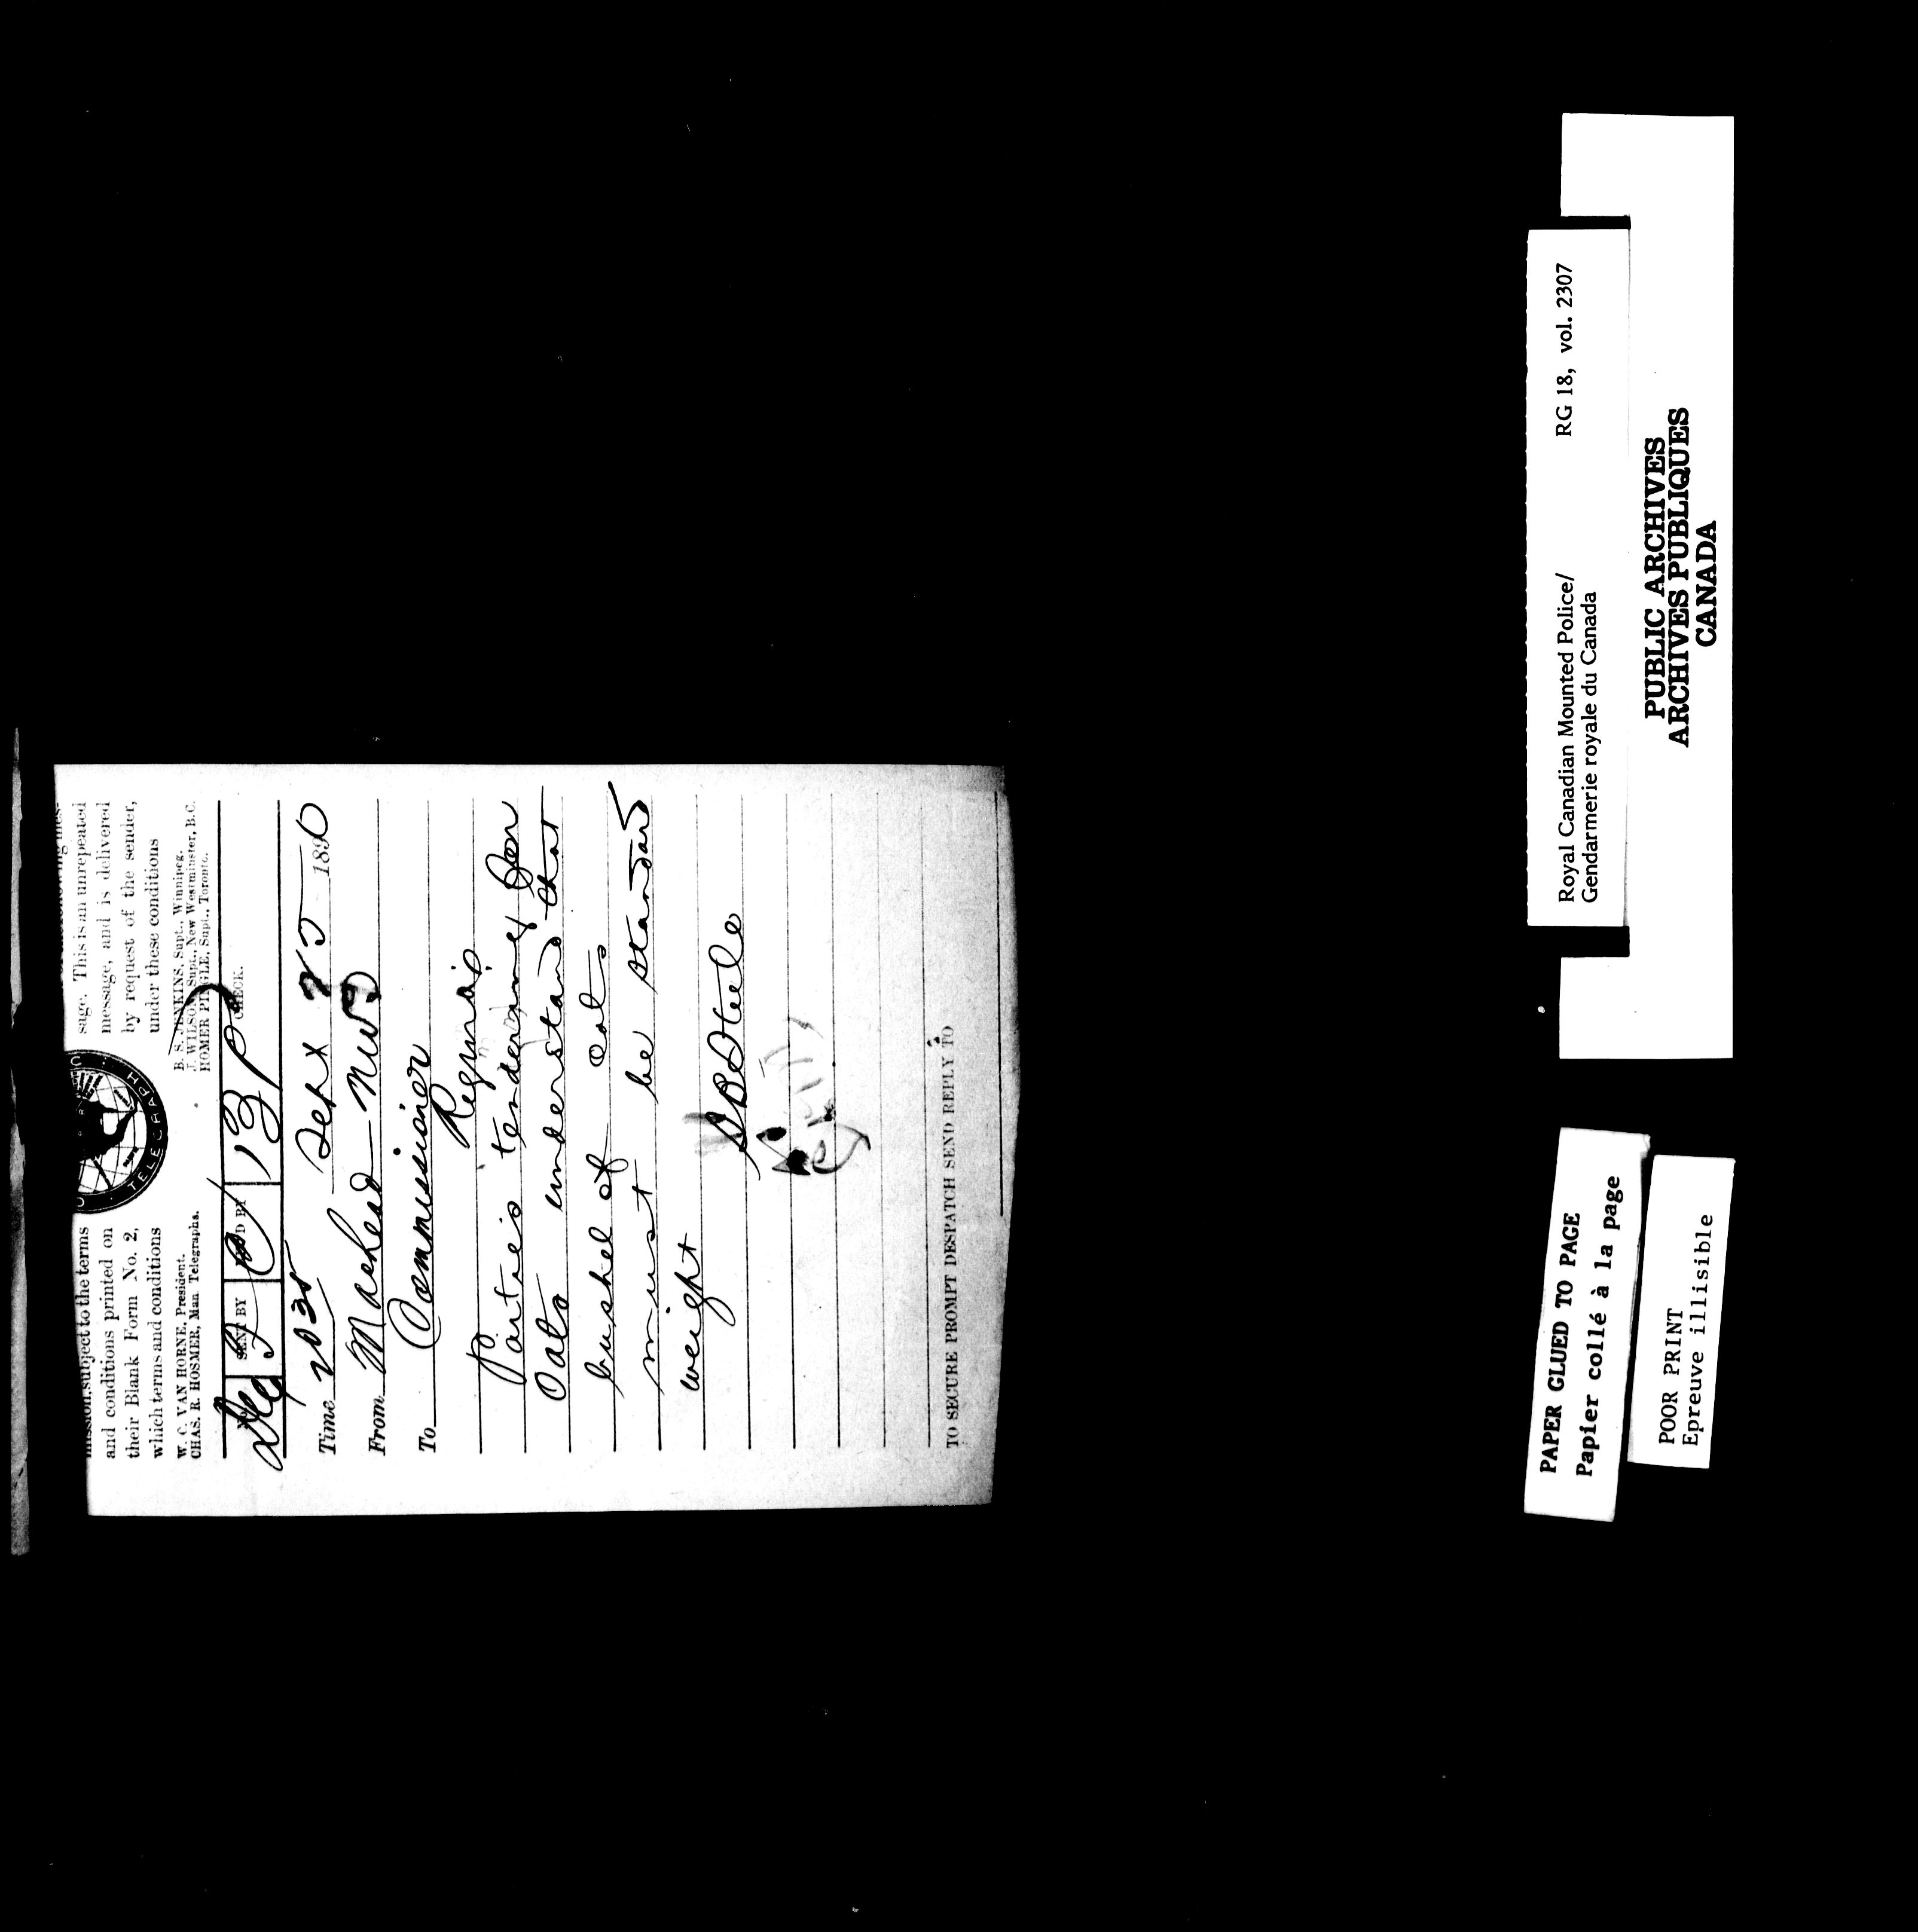 mission, subject to the terms
and conditions printed on
their Blank Form No. 2,
which terms and conditions
sage. This is an unrepeated
message, and is delivered
by request of the sender,
under these conditions
TELEGRAPH
W. C. VAN HORNE, President.
CHAS. R. HOSMER, Man Telegraphs.
B. S. JENKINS, Supt., Winnipeg.
J. WILSON, Supt., New Westminster, B.C.
HOMER PINGLE, Supt., Toronto.
SENT BY
CHECK.
13 P
Time 2035 Sept 25 1890
From Macleod NWT
To Commissioner
Regina
Parties tendering for
Oats understand that
bushel of oats
must be standard
weight
S B Steele
TO SECURE PROMPT DESPATCH SEND REPLY TO
Royal Canadian Mounted Police/
Gendarmerie royale du Canada
RG 18, vol. 2307
PUBLIC ARCHIVES
ARCHIVES PUBLIQUES
CANADA
PAPER GLUED TO PAGE
Papier collé à la page
POOR PRINT
Epreuve illisible